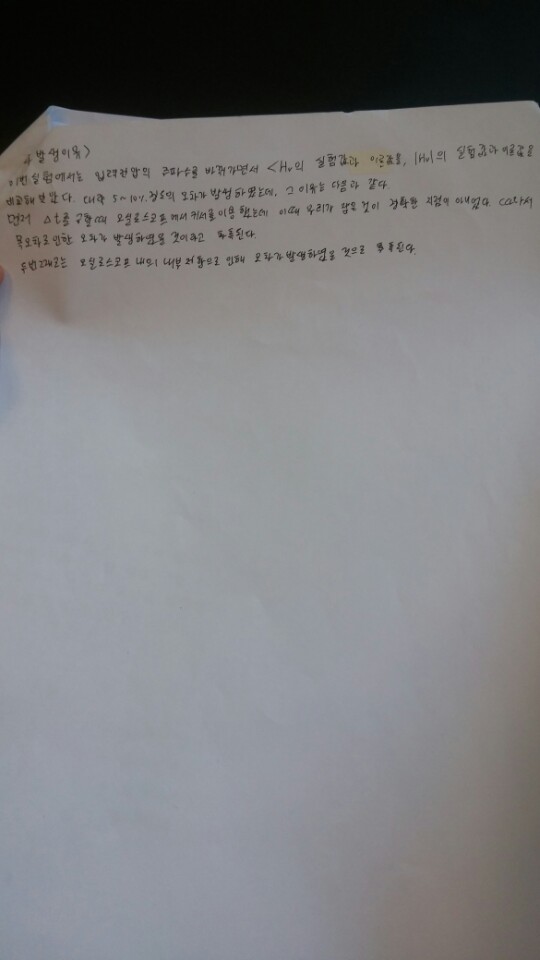 발생이유>
이번 실험에서는 입력전압의 주파수를 바꿔가면서 <Hv의 실험값과 이론값을, |Hv|의 실험값과 이론값을
비교해 보았다. 대략 5~10% 정도의 오차가 발생하였는데, 그 이유는 다음과 같다.
먼저 Δt를 구할때 오실로스코프에서 커서를 이용했는데 이때 우리가 잡은 것이 정확한 지점이 아니었다. 따라서
인한 오차가 발생하였을 것이라고 판단된다.
두번째로는 오실로스코프 내의 내부저항으로 인해 오차가 발생하였을 것으로 판단된다.